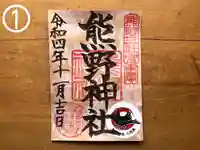 ①
熊野神社
令和四年十一月吉日